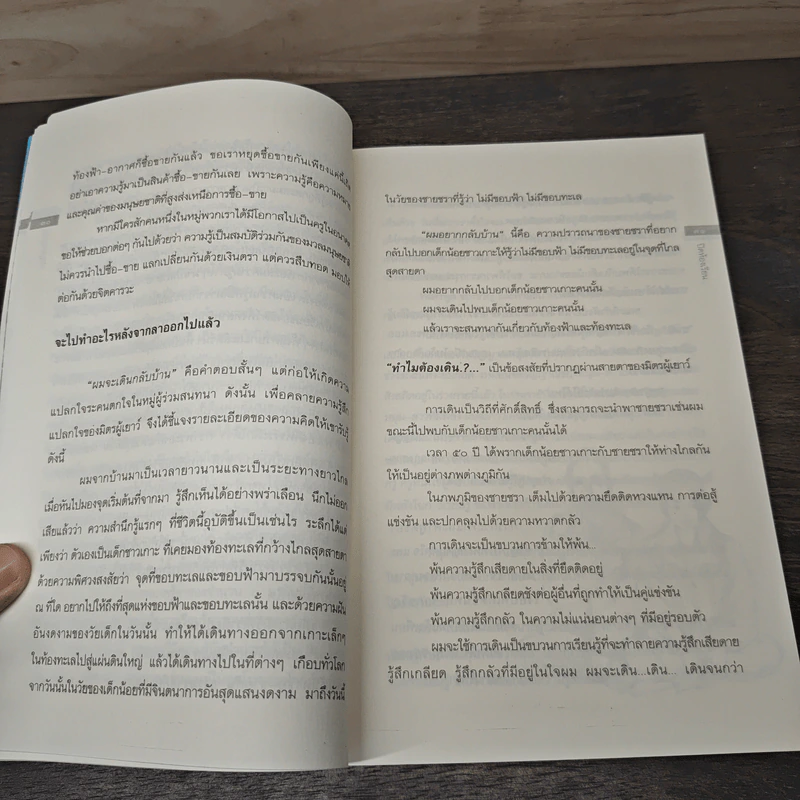 ท้องฟ้า-อากาศก็ซื้อขายกันแล้ว ขอเราหยุดซื้อขายกันเพียงแค่นี้เถิด
อย่าเอาความรู้มาเป็นสินค้าซื้อ-ขายกันเลย เพราะความรู้คือความหมาย
และคุณค่าของมนุษยชาติที่สูงส่งเหนือการซื้อ-ขาย
หากมีใครสักคนหนึ่งในหมู่พวกเราได้มีโอกาสไปเป็นครูในอนาคต
ขอให้ช่วยบอกต่อๆ กันไปด้วยว่า ความรู้เป็นสมบัติร่วมกันของมวลมนุษยชาติ
ไม่ควรนำไปซื้อ-ขาย แลกเปลี่ยนกันด้วยเงินตรา แต่ควรสืบทอด มอบให้
ต่อกันด้วยจิตคารวะ
จะไปทำอะไรหลังจากลาออกไปแล้ว
"ผมจะเดินกลับบ้าน" คือคำตอบสั้นๆ แต่ก่อให้เกิดความ
แปลกใจระคนตกใจในหมู่ผู้ร่วมสนทนา ดังนั้น เพื่อคลายความรู้สึก
แปลกใจของมิตรผู้เยาว์ จึงได้ชี้แจงรายละเอียดของความคิดให้เขารับรู้
ดังนี้
ผมจากบ้านมาเป็นเวลายาวนานและเป็นระยะทางยาวไกล
เมื่อหันไปมองจุดเริ่มต้นที่จากมา รู้สึกเห็นได้อย่างพร่าเลือน นึกไม่ออก
เสียแล้วว่า ความสำนึกรู้แรกๆ ที่ชีวิตนี้อุบัติขึ้นเป็นเช่นไร ระลึกได้แต่
เพียงว่า ตัวเองเป็นเด็กชาวเกาะ ที่เคยมองท้องทะเลที่กว้างไกลสุดสายตา
ด้วยความพิศวงสงสัยว่า จุดที่ขอบทะเลและขอบฟ้ามาบรรจบกันนั้นอยู่
ณ ที่ใด อยากไปให้ถึงที่สุดแห่งขอบฟ้าและขอบทะเลนั้น และด้วยความฝัน
อันงดงามของวัยเด็กในวันนั้น ทำให้ได้เดินทางออกจากเกาะเล็กๆ
ในท้องทะเลไปสู่แผ่นดินใหญ่ แล้วได้เดินทางไปในที่ต่างๆ เกือบทั่วโลก
จากวันนั้นในวัยของเด็กน้อยที่มีจินตนาการอันสุดแสนงดงาม มาถึงวันนี้
ในวัยของชายชราที่รู้ว่า ไม่มีขอบฟ้า ไม่มีขอบทะเล
"ผมอยากกลับบ้าน" นี้คือ ความปรารถนาของชายชราที่อยาก
กลับไปบอกเด็กน้อยชาวเกาะให้รู้ว่าไม่มีขอบฟ้า ไม่มีขอบทะเลอยู่ในจุดที่ไกล
สุดสายตา
ผมอยากกลับไปบอกเด็กน้อยชาวเกาะคนนั้น
ผมจะเดินไปพบเด็กน้อยชาวเกาะคนนั้น
แล้วเราจะสนทนากันเกี่ยวกับท้องฟ้าและท้องทะเล
"ทำไมต้องเดิน.?..." เป็นข้อสงสัยที่ปรากฏผ่านสายตาของมิตรผู้เยาว์
การเดินเป็นวิถีที่ศักดิ์สิทธิ์ ซึ่งสามารถจะนำพาชายชราเช่นผม
ขณะนี้ไปพบกับเด็กน้อยชาวเกาะคนนั้นได้
เวลา ๕๐ ปี ได้พรากเด็กน้อยชาวเกาะกับชายชราให้ห่างไกลกัน
ให้เป็นอยู่ต่างภพต่างภูมิกัน
ในภพภูมิของชายชรา เต็มไปด้วยความยึดติดหวงแหน การต่อสู้
แข่งขัน และปกคลุมไปด้วยความหวาดกลัว
การเดินจะเป็นขบวนการข้ามให้พ้น...
พ้นความรู้สึกเสียดายในสิ่งที่ยึดติดอยู่
พ้นความรู้สึกเกลียดชังต่อผู้อื่นที่ถูกทำให้เป็นคู่แข่งขัน
พ้นความรู้สึกกลัว ในความไม่แน่นอนต่างๆ ที่มีอยู่รอบตัว
ผมจะใช้การเดินเป็นขบวนการเรียนรู้ที่จะทำลายความรู้สึกเสียดาย
รู้สึกเกลียด รู้สึกกลัวที่มีอยู่ในใจผม ผมจะเดิน...เดิน... เดินจนกว่า